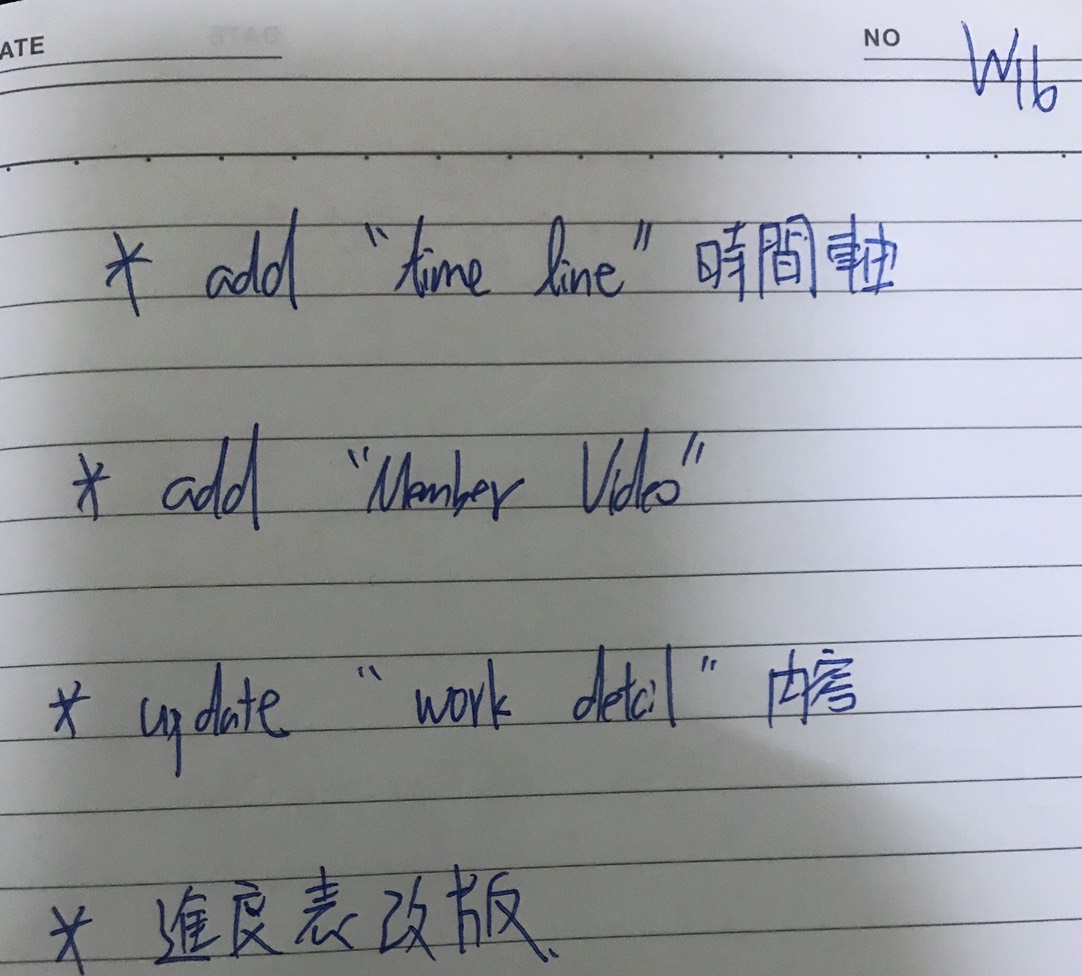 ATE
NO W16
* add "time line" 時間軸
* add "Member Video"
* update "work detail" 內容
* 進度表改版